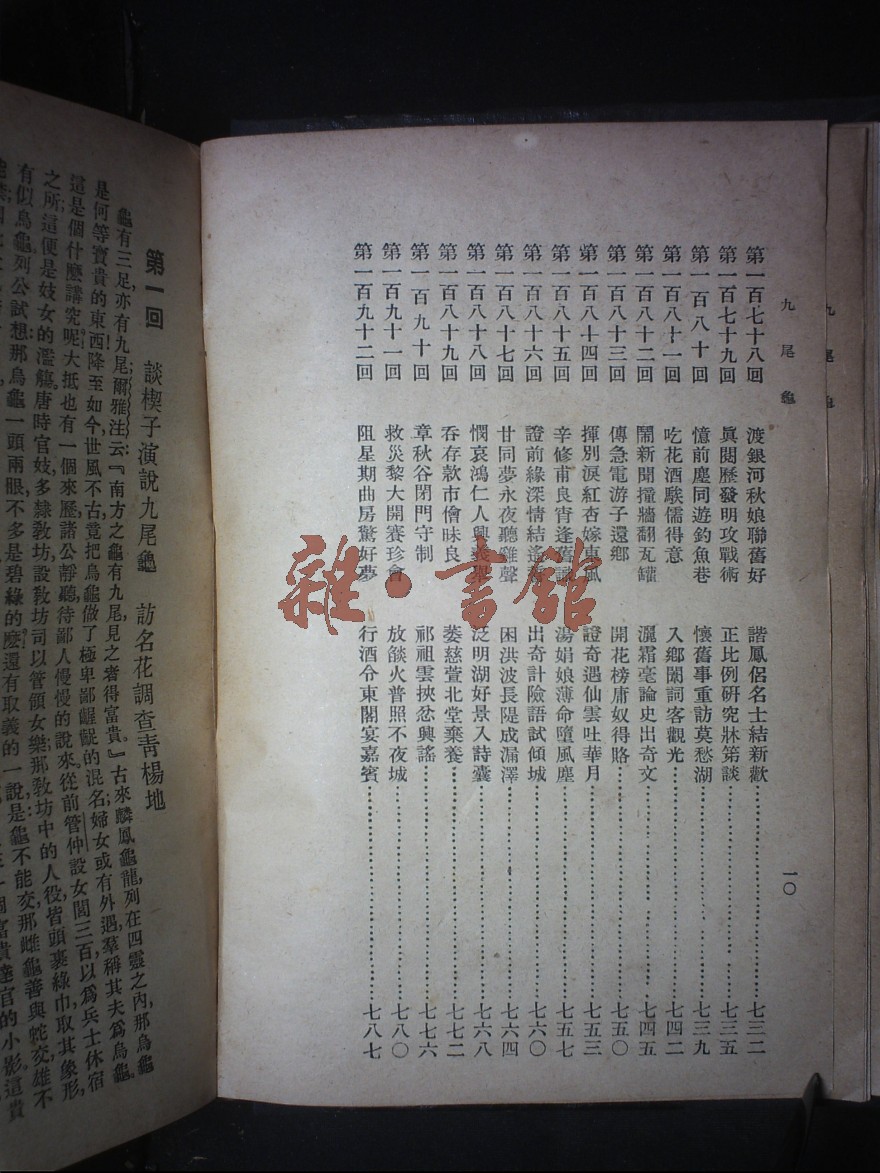 九尾龜
九尾龜
一〇
第一百七十八回 渡銀河秋娘聯舊好 諧鳳侶名士結新歡 七三二
第一百七十九回 眞閱歷發明攻戰術 正比例研究牀笫談 七三五
第一百八十回 憶前塵同遊釣魚巷 懷舊事重訪莫愁湖 七三九
第一百八十一回 吃花酒騃儒得意 入鄉闈詞客觀光 七四二
第一百八十二回 鬧新聞撞牆翻瓦罐 灑霜毫論史出奇文 七四五
第一百八十三回 傳急電游子還鄉 開花榜庸奴得賂 七五〇
第一百八十四回 揮別淚紅杏嫁東風 證奇遇仙雲吐華月 七五三
第一百八十五回 辛修甫良宵逢舊識 湯娟娘薄命墮風塵 七五七
第一百八十六回 證前緣深情結遙 出奇計險語試傾城 七六〇
第一百八十七回 甘同夢永夜聽雞聲 困洪波長隄成漏澤 七六四
第一百八十八回 憫哀鴻仁人興義 泛明湖好景入詩囊 七六八
第一百八十九回 吞存款市儈昧良 萎慈萱北堂棄養 七七二
第一百九十回 章秋谷閉門守制 祁祖雲挾忿興謠 七七六
第一百九十一回 救災黎大開賽珍會 放燄火普照不夜城 七八〇
第一百九十二回 阻星期曲房驚好夢 行酒令東閣宴嘉賓 七八七
雜·書館
第一回 談楔子演說九尾龜 訪名花調查靑楊地
龜有三足,亦有九尾;爾雅注云:『南方之龜有九尾,見之者得富貴。』古來麟鳳龜龍,列在四靈之內,那烏龜
是何等寶貴的東西!降至如今,世風不古,竟把烏龜做了極卑鄙齷齪的混名;婦女或有外遇,羣稱其夫爲烏龜,
這是個什麽講究呢?大抵也有一個來歷,諸公靜聽,待鄙人慢慢的說來。從前管仲設女閭三百,以爲兵士休宿
之所;這便是妓女的濫觴。唐時官妓,多隸教坊,設教坊司以管領女樂;那教坊中的人役,皆頭裹綠巾,取其象形,
有似烏龜。列公試想,那烏龜一頭兩眼,不多是碧綠的麽?還有取義的一說,是龜不能交,那雌龜善與蛇交,雄不